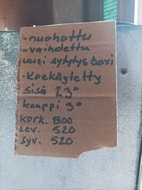 -nuohottu
-vaihdettu
uusi sytytysbovi
-koekäytetty
sisä 23°
kamppi 9°
kork. 800
lev. 520
syv. 520